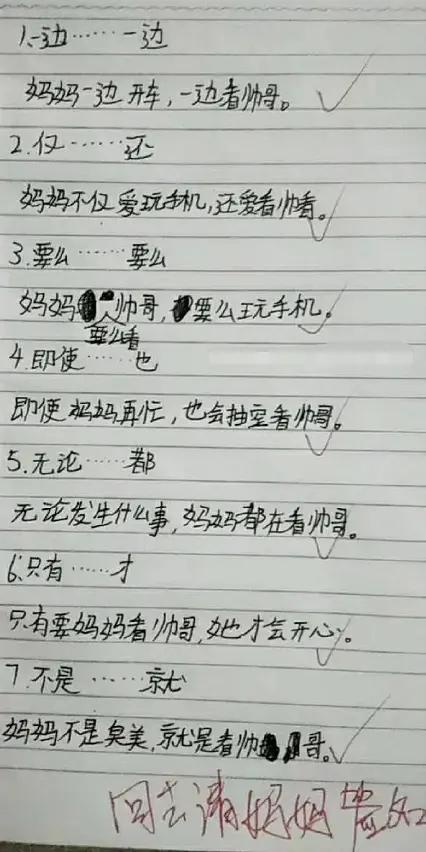 1.一边……一边
妈妈一边开车，一边看帅哥。
2.仅……还
妈妈不仅爱玩手机，还爱看帅哥。
3.要么……要么
妈妈要么看帅哥，要么玩手机。
4.即使……也
即使妈妈再忙，也会抽空看帅哥。
5.无论……都
无论发生什么事，妈妈都在看帅哥。
6.只有……才
只有要妈妈看帅哥，她才会开心。
7.不是……就
妈妈不是臭美，就是看帅哥。
回去请妈妈签知